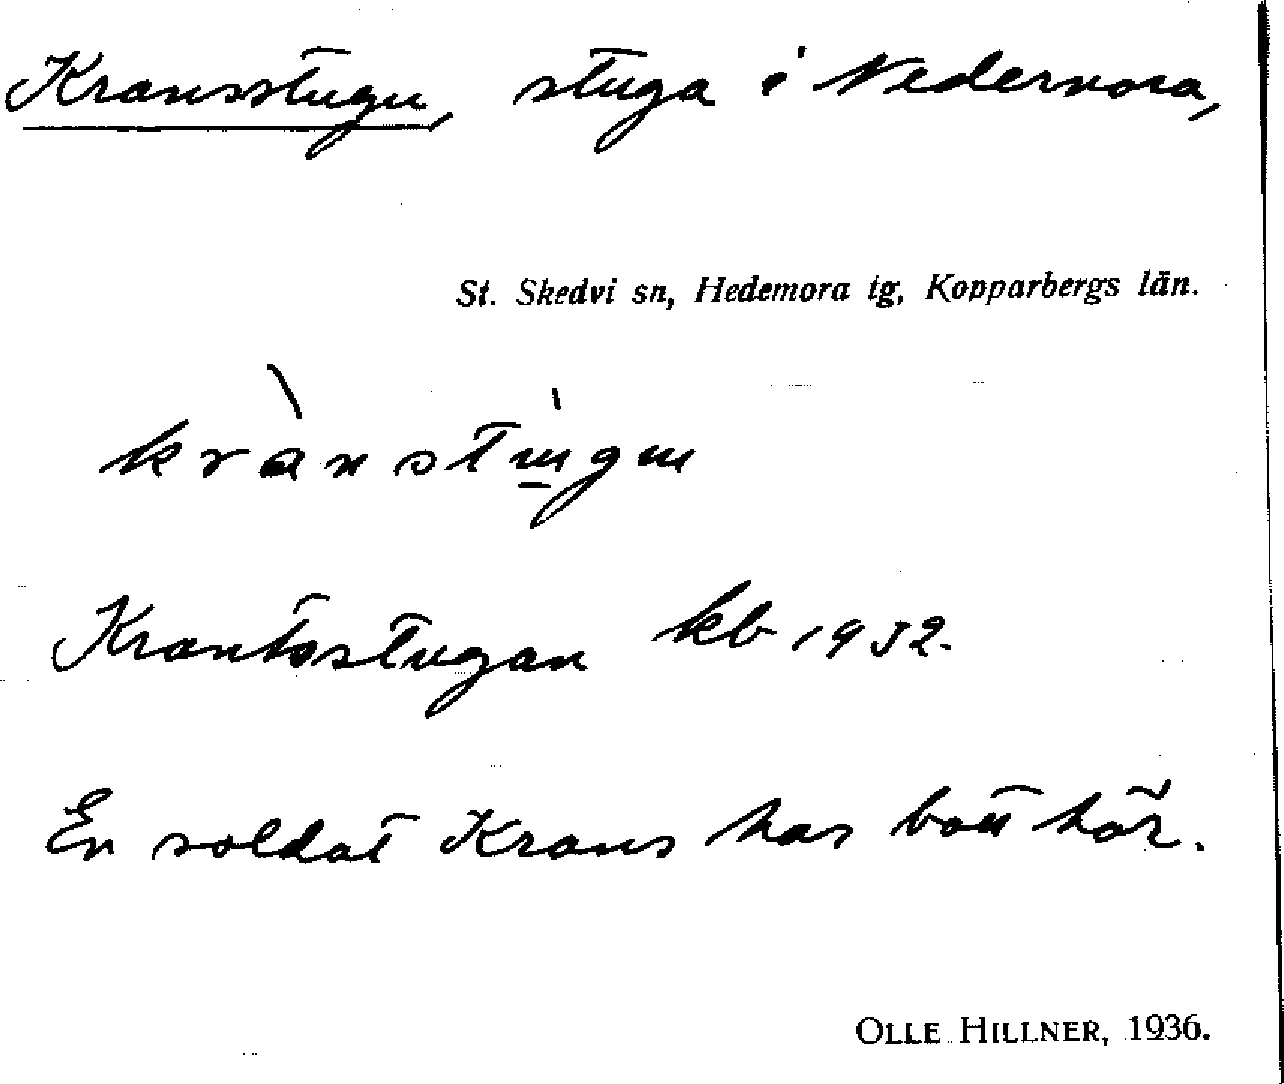 Kransstugu, stuga i Nedernora,
St. Skedvi sn, Hedemora tg, Kopparbergs län.
krànstu̱gu
Krantsstugan kb 1932.
En soldat Krans har bott här.
OLLE HILLNER, 1936.